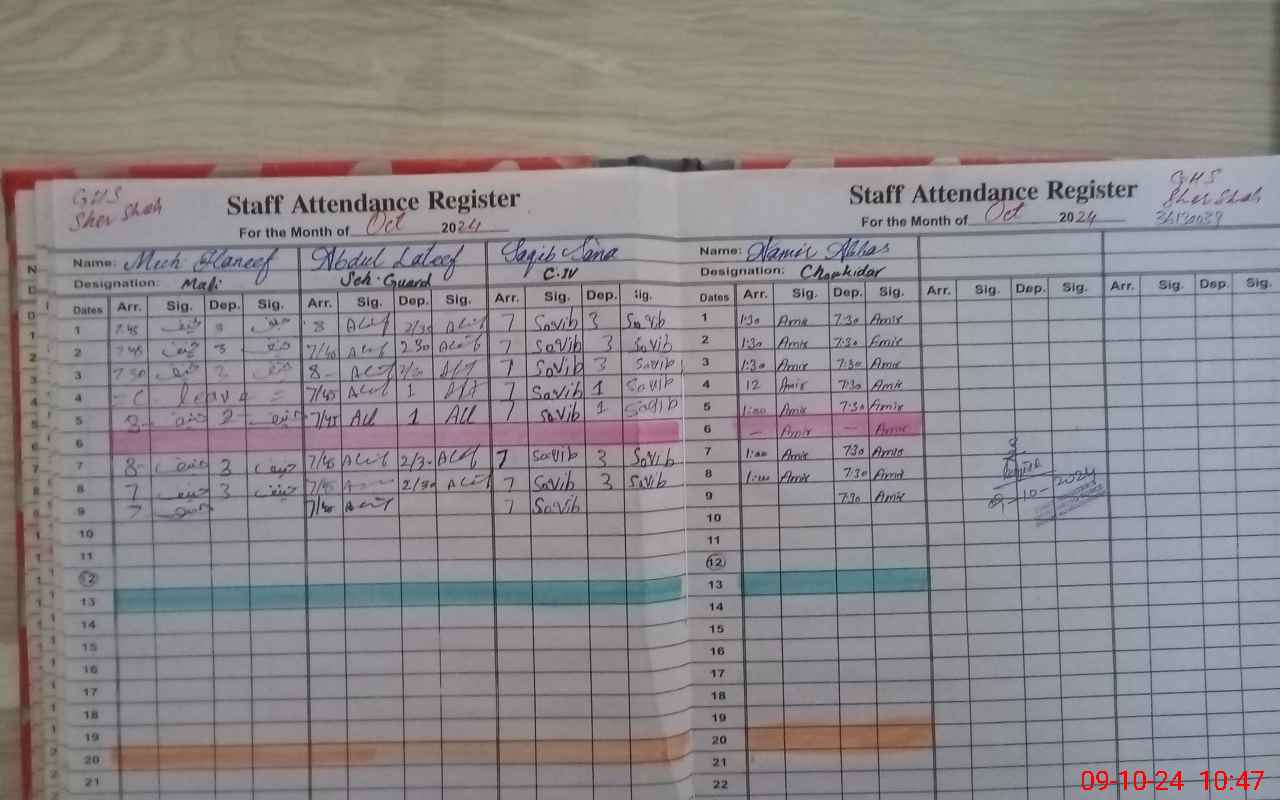 GHS
Sher Shah
Staff Attendance Register
For the Month of Oct 2024
Name: Muh Haneef Abdul Lateef Saqib Sana
Designation: Mali Sch. Guard C-IV
Dates Arr. Sig. Dep. Sig. Arr. Sig. Dep. Sig. Arr. Sig. Dep. Sig.
1 7:45 حنیف 3 حنیف 8 2/30 7 Saqib 3 Saqib
2 7:45 حنیف 3 حنیف 7/40 2 30 7 Saqib 3 Saqib
3 7:30 حنیف حنیف 8 7 Saqib 3 Saqib
4 C leave 7/45 1 7 Saqib 1 Saqib
5 8 حنیف 2 حنیف 7/45 1 7 Saqib 1 Saqib
6
7 8 حنیف 3 حنیف 7/45 2/30 7 Saqib 3 Saqib
8 7 حنیف 3 حنیف 7/45 2/30 7 Saqib 3 Saqib
9 7 حنیف 7/40 7 Saqib
10
11
12
13
14
15
16
17
18
19
20
21
GHS
Sher Shah
36130039
Staff Attendance Register
For the Month of Oct 2024
Name: Aamir Abbas
Designation: Chowkidar
Dates Arr. Sig. Dep. Sig. Arr. Sig. Dep. Sig. Arr. Sig. Dep. Sig.
1 1:30 Amir 7:30 Amir
2 1:30 Amir 7:30 Amir
3 1:30 Amir 7:30 Amir
4 12 Amir 7:30 Amir
5 1:00 Amir 7:30 Amir
6 — Amir — Amir
7 1:00 Amir 7:30 Amir
8 1:00 Amir 7:30 Amir
9 7:30 Amir
9-10-2024
10
11
12
13
14
15
16
17
18
19
20
21
22
09-10-24 10:47